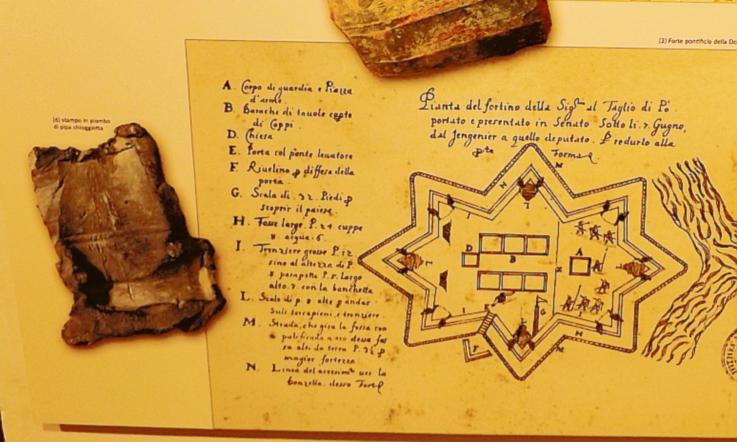 [2] Forte pontificio della Do
[6] stampo in piombo
di pipa chioggiotta
A. Corpo di guardia e Piazza
d'armo.
B. Barache di tavole copte
di Coppi.
D. Chiesa
E. Porta col ponte levatore
F. Rivelino p diffesa della
porta.
G. Scala di. 32. Piedi p
scoprir il paiese.
H. Fosse largo. P. 24 cuppe
acqua. 6.
I. Trenziere grosse P. 12
sino al altezza di P.
8. parapetto P. 5. largo
alto. 7. con la banchetta
L. Scale di p 8 alte p andar
suli terrapieni, e trenziere.
M. Strada, che gira la fossa con
palificada
alti da terra P.
magior fortezza
N. Linea del
Pianta del fortino della Sigria al Taglio di Pò.
portato e presentato in Senato Sotto li. 7. Giugno,
dal Jengenier a quello deputato. P redurlo alla
pte Forma
M
N
L
I
D
B
A
I
G
F
H
M